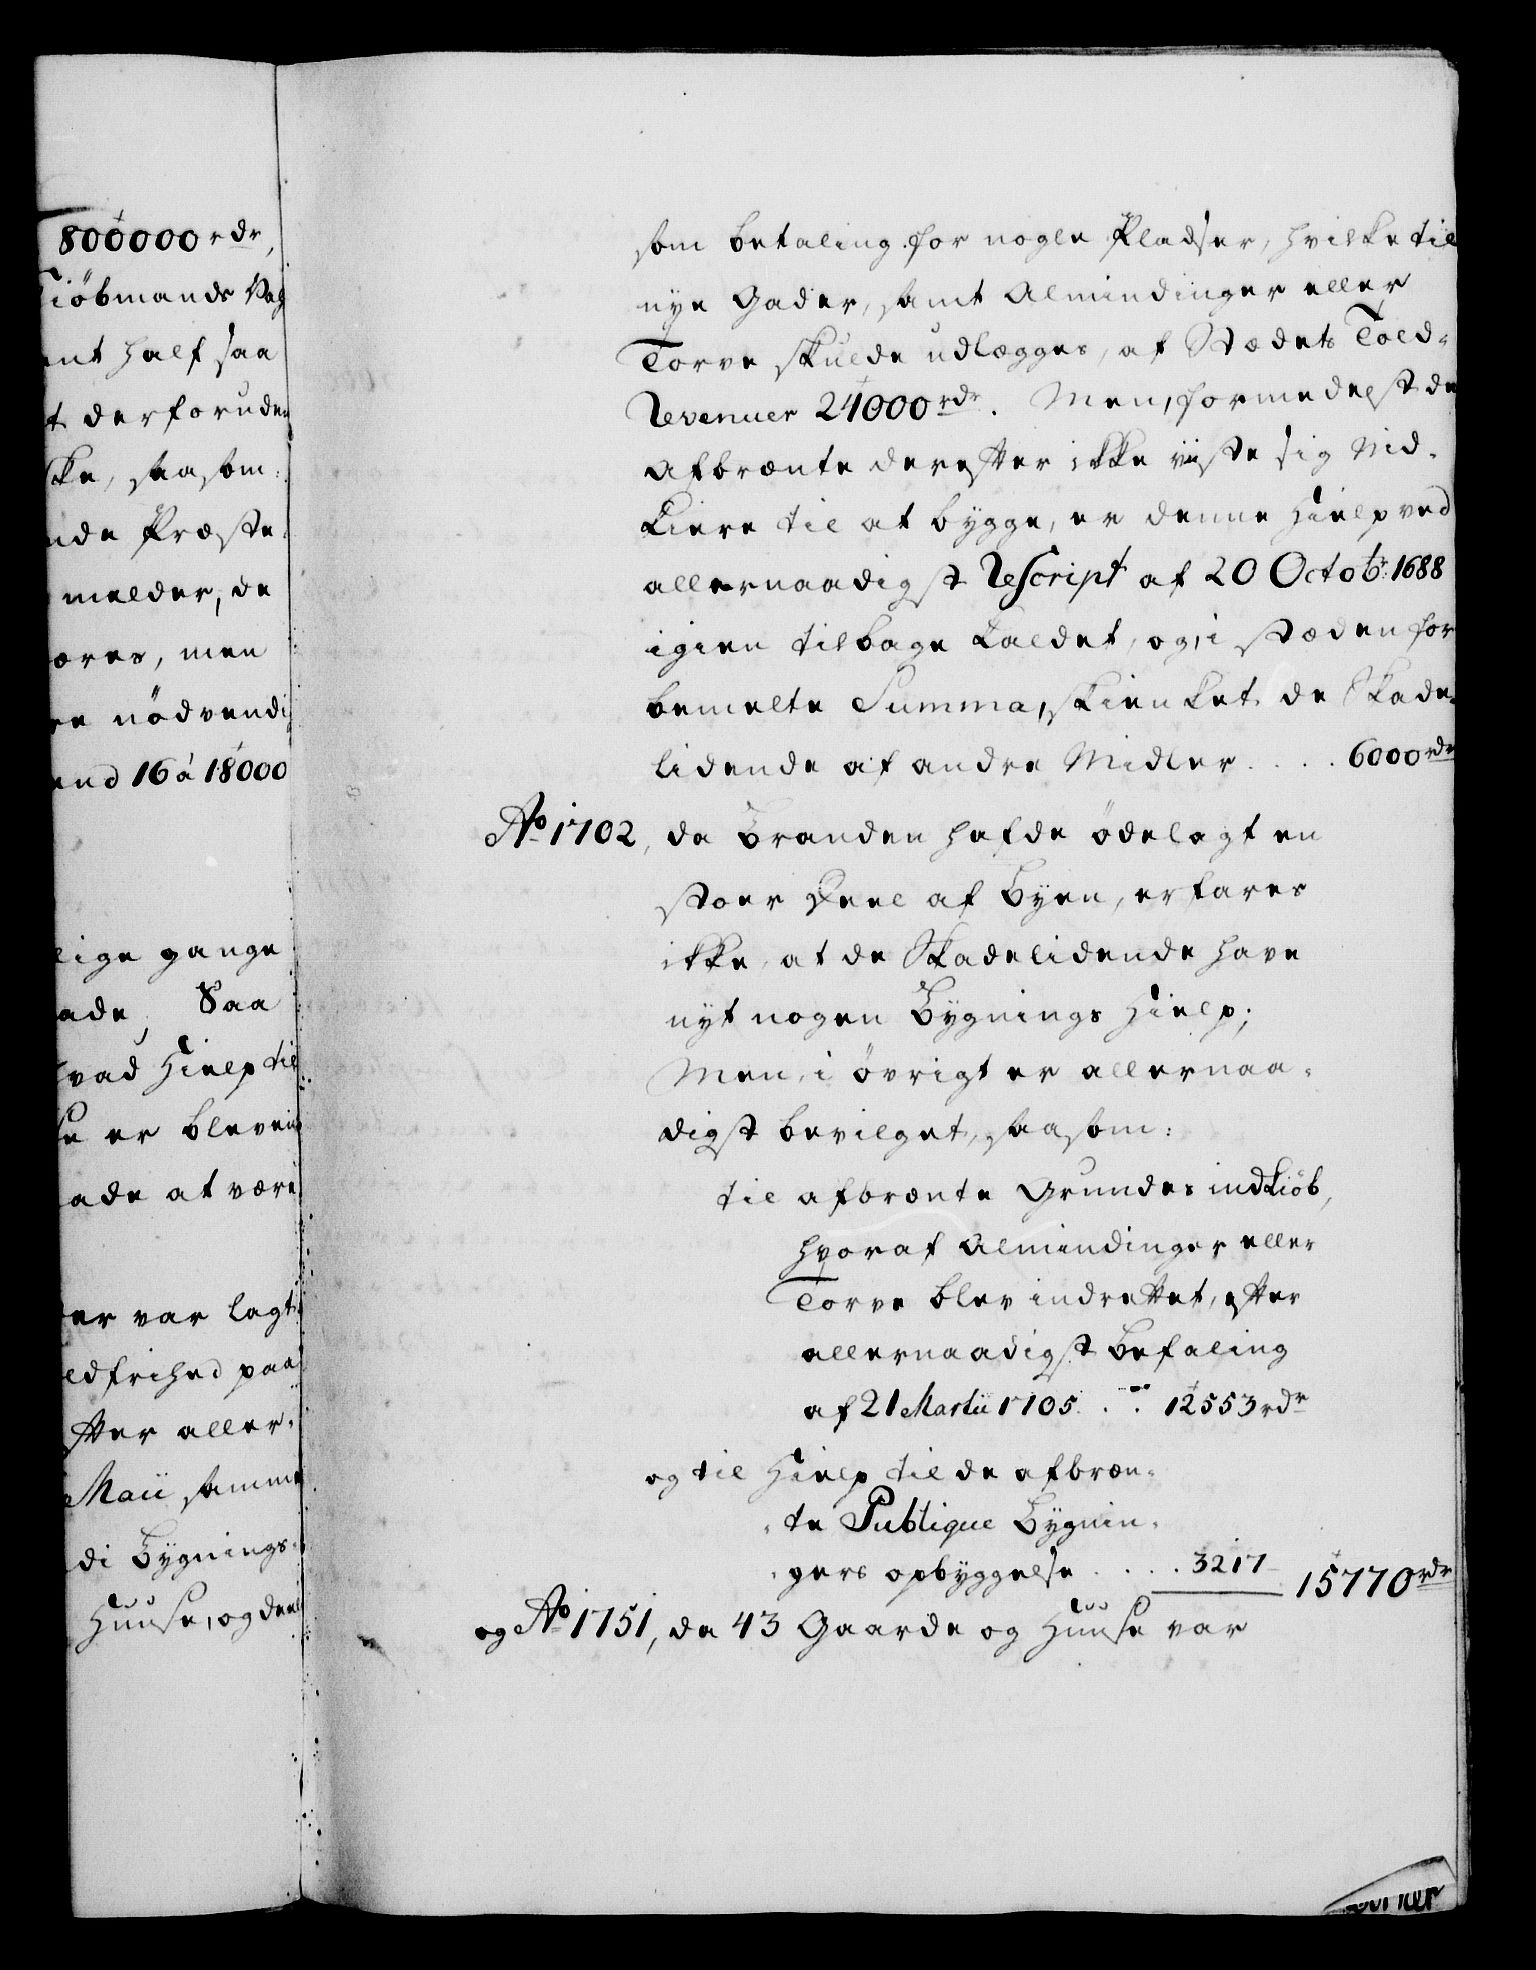 800000 rdr,
iöbmands Vaf
nt half saa
t derforuden
ke, saasom:
nde Præste-
melder, de
ores, men
re nödvendi
end 16 á 18000
lige gange
ade, Saa
hvad Hielp til
se er bleven
ade at være
er var lagt
ldfrihed paa
fter aller-
Maii samme
di Bÿgnings-
Huuse, og deel
som betaling for nogle Pladser, hvilke til
nye Gader, samt Almindinger eller
Torve skulde udlægges, af Stædets Told-
Revenuer 24000 rdr. Men, formedelst de
Afbrænte derefter ikke viiste sig Nid-
kiere til at bÿgge, er denne Hielp ved
allernaadigst Rescript af 20 Octobr: 1688
igien tilbage kaldet, og, i stæden for
bemelte Summa, skienket de Skade-
lidende af andre Midler . . . . 6000 rdr
Ao 1702, da Branden hafde ödelagt en
stoer Deel af Bÿen, erfares
ikke, at de Skadelidende have
nÿt nogen Bÿgnings Hielp;
Men, i övrigt er allernaa-
digst bevilget, saasom:
til afbrænte Grundes indkiöb,
hvoraf Almindinger eller
Torve blev indrettet, efter
allernaadigst Befaling
af 21 Martii 1705 . . . 12553 rdr
og til Hielp til de afbræn-
te Publique Bÿgnin-
gers opbÿggelse . . . . 3217 15770 rdr
og Ao 1751, da 43 Gaarde og Huuse var